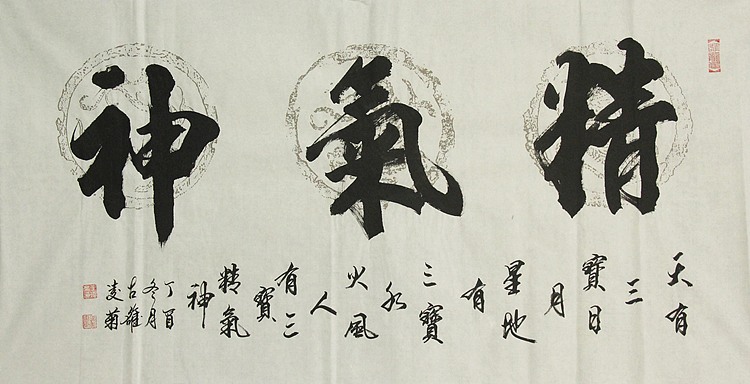 精氣神
天有
三
寶日
月
星地
有
三寶
水
火風
人
有三
寶
精氣
神
丁酉
冬月
古雄
凌菊